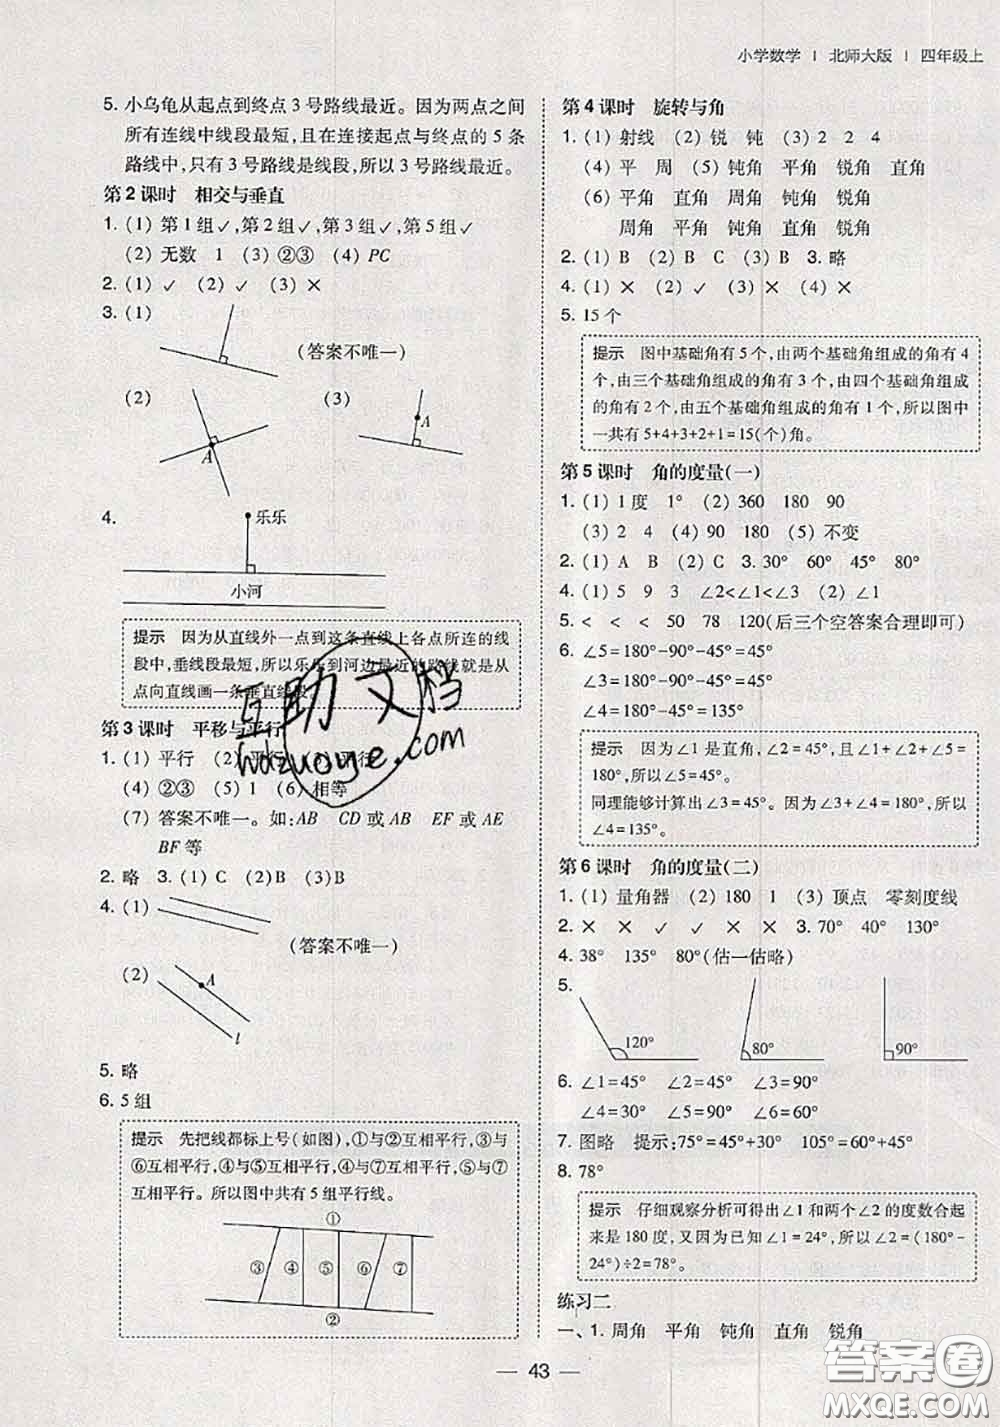 小学数学 | 北师大版 | 四年级上
5. 小乌龟从起点到终点 3 号路线最近。因为两点之间
所有连线中线段最短,且在连接起点与终点的 5 条
路线中,只有 3 号路线是线段,所以 3 号路线最近。
第 2 课时 相交与垂直
1. (1) 第 1 组✓,第 2 组✓,第 3 组✓,第 5 组✓
(2) 无数 1 (3) ②③ (4) PC
2. (1) ✓ (2) ✓ (3) ✕
3. (1)
(答案不唯一)
(2) (3)
A
A
4.
乐乐
小河
提示 因为从直线外一点到这条直线上各点所连的线
段中,垂线段最短,所以乐乐到河边最近的路线就是从
点向直线画一条垂直线段。
第 3 课时 平移与平行
1. (1) 平行 (2) 平行 (3) 平行
(4) ②③ (5) 1 (6) 相等
(7) 答案不唯一。如:AB CD 或 AB EF 或 AE
BF 等
2. 略 3. (1) C (2) B (3) B
4. (1)
(答案不唯一)
(2)
A
l
5. 略
6. 5 组
提示 先把线都标上号(如图),①与②互相平行,③与
⑥互相平行,④与⑤互相平行,④与⑦互相平行,⑤与⑦
互相平行。所以图中共有 5 组平行线。
①
③ ④ ⑤ ⑥ ⑦
②
第 4 课时 旋转与角
1. (1) 射线 (2) 锐 钝 (3) 2 2 4
(4) 平 周 (5) 钝角 平角 锐角 直角
(6) 平角 直角 周角 钝角 锐角
周角 平角 钝角 直角 锐角
2. (1) B (2) B C (3) B 3. 略
4. (1) ✕ (2) ✓ (3) ✕ (4) ✓
5. 15 个
提示 图中基础角有 5 个,由两个基础角组成的角有 4
个,由三个基础角组成的角有 3 个,由四个基础角组成
的角有 2 个,由五个基础角组成的角有 1 个,所以图中
一共有 5+4+3+2+1=15(个)角。
第 5 课时 角的度量(一)
1. (1) 1 度 1° (2) 360 180 90
(3) 2 4 (4) 90 180 (5) 不变
2. (1) A B (2) C 3. 30° 60° 45° 80°
4. (1) 5 9 3 ∠2<∠1<∠3 (2) ∠3
5. < < < 50 78 120(后三个空答案合理即可)
6. ∠5=180°-90°-45°=45°
∠3=180°-90°-45°=45°
∠4=180°-45°=135°
提示 因为∠1 是直角,∠2=45°,且∠1+∠2+∠5=
180°,所以∠5=45°。
同理能够计算出∠3=45°。因为∠3+∠4=180°,所以
∠4=135°。
第 6 课时 角的度量(二)
1. (1) 量角器 (2) 180 1 (3) 顶点 零刻度线
2. ✕ ✕ ✓ ✕ ✕ 3. 70° 40° 130°
4. 38° 135° 80°(估一估略)
5.
120° 80° 90°
6. ∠1=45° ∠2=45° ∠3=90°
∠4=90° ∠5=45° ∠6=45°
7. 图略 提示:75°=45°+30° 105°=60°+45°
8. 78°
提示 仔细观察分析可得出∠1 和两个∠2 的度数合起
来是 180 度,又因为已知∠1=24°,所以∠2=(180°-
24°)÷2=78°。
练习二
一、1. 周角 平角 钝角 直角 锐角
43
互助文档
hazuoye.com
答案圈
MXQE.COM